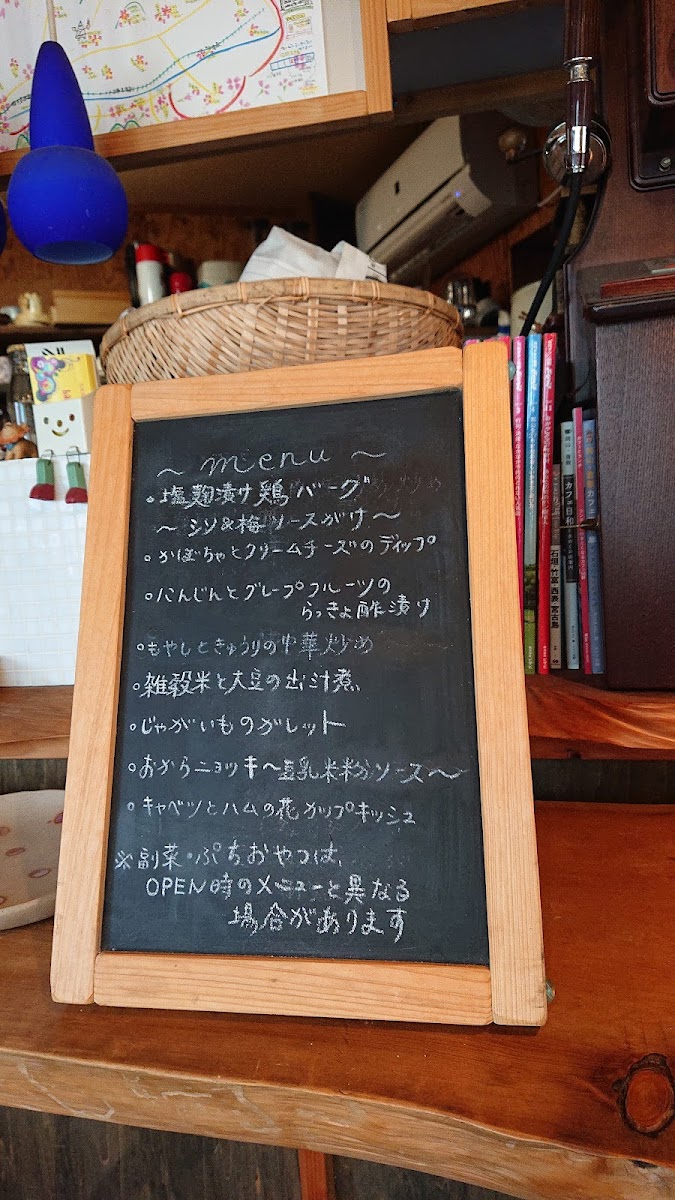 ～ menu ～
。塩麹漬け鶏バーグ
～シソ&梅ソースがけ～
。かぼちゃとクリームチーズのディップ
。にんじんとグレープフルーツの
らっきょ酢漬け
。もやしときゅうりの中華炒め
。雑穀米と大豆の出汁煮
。じゃがいものガレット
。おからニョッキ～豆乳米粉ソース～
。キャベツとハムの花カップキッシュ
※副菜・ぷちおやつは、
OPEN時のメニューと異なる
場合があります
カフェ日和
石垣 竹富 西表 宮古島